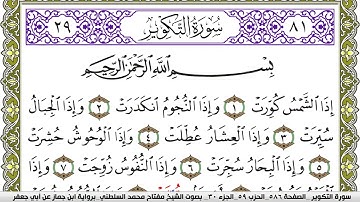 ٨١ سُورَةُ التَّكْوِيرِ ٢٩
بِسْمِ ٱللَّهِ ٱلرَّحْمَٰنِ ٱلرَّحِيمِ
إِذَا ٱلشَّمْسُ كُوِّرَتْ ١ وَإِذَا ٱلنُّجُومُ ٱنكَدَرَتْ ٢ وَإِذَا ٱلْجِبَالُ
سُيِّرَتْ ٣ وَإِذَا ٱلْعِشَارُ عُطِّلَتْ ٤ وَإِذَا ٱلْوُحُوشُ حُشِرَتْ
٥ وَإِذَا ٱلْبِحَارُ سُجِّرَتْ ٦ وَإِذَا ٱلنُّفُوسُ زُوِّجَتْ ٧ وَإِذَا
سورة التكوير _ الصفحة ٥٨٦ _ الحزب ٥٩ _ الجزء ٣٠ _ بصوت الشيخ مفتاح محمد السلطني _ برواية ابن جماز عن أبي جعفر